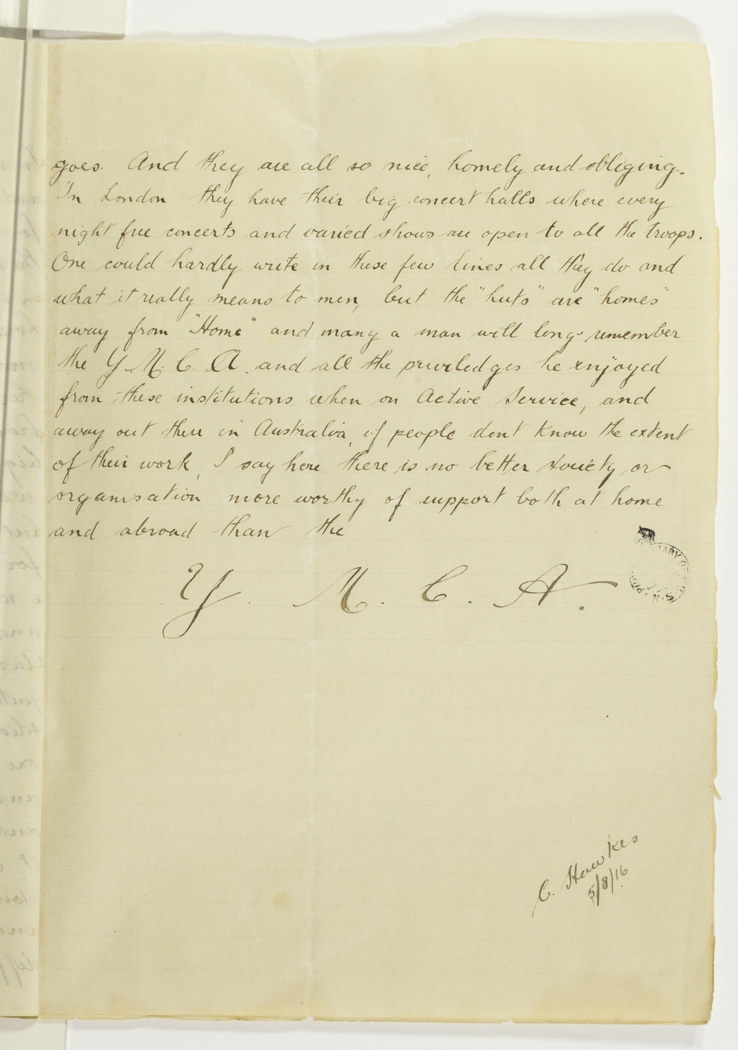 goes. And they are all so nice, homely and obliging.
In London they have their big concert halls where every
night free concerts and varied shows are open to all the troops.
One could hardly write in these few lines all they do and
what it really means to men, but the "huts" are "homes"
away from "Home" and many a man will long remember
the Y. M. C. A. and all the priviledges he enjoyed
from these institutions when on Active Service, and
away out there in Australia, if people dont know the extent
of their work, I say here there is no better society or
organisation more worthy of support both at home
and abroad than the
Y. M. C. A.
C. Hawkes
5/8/16